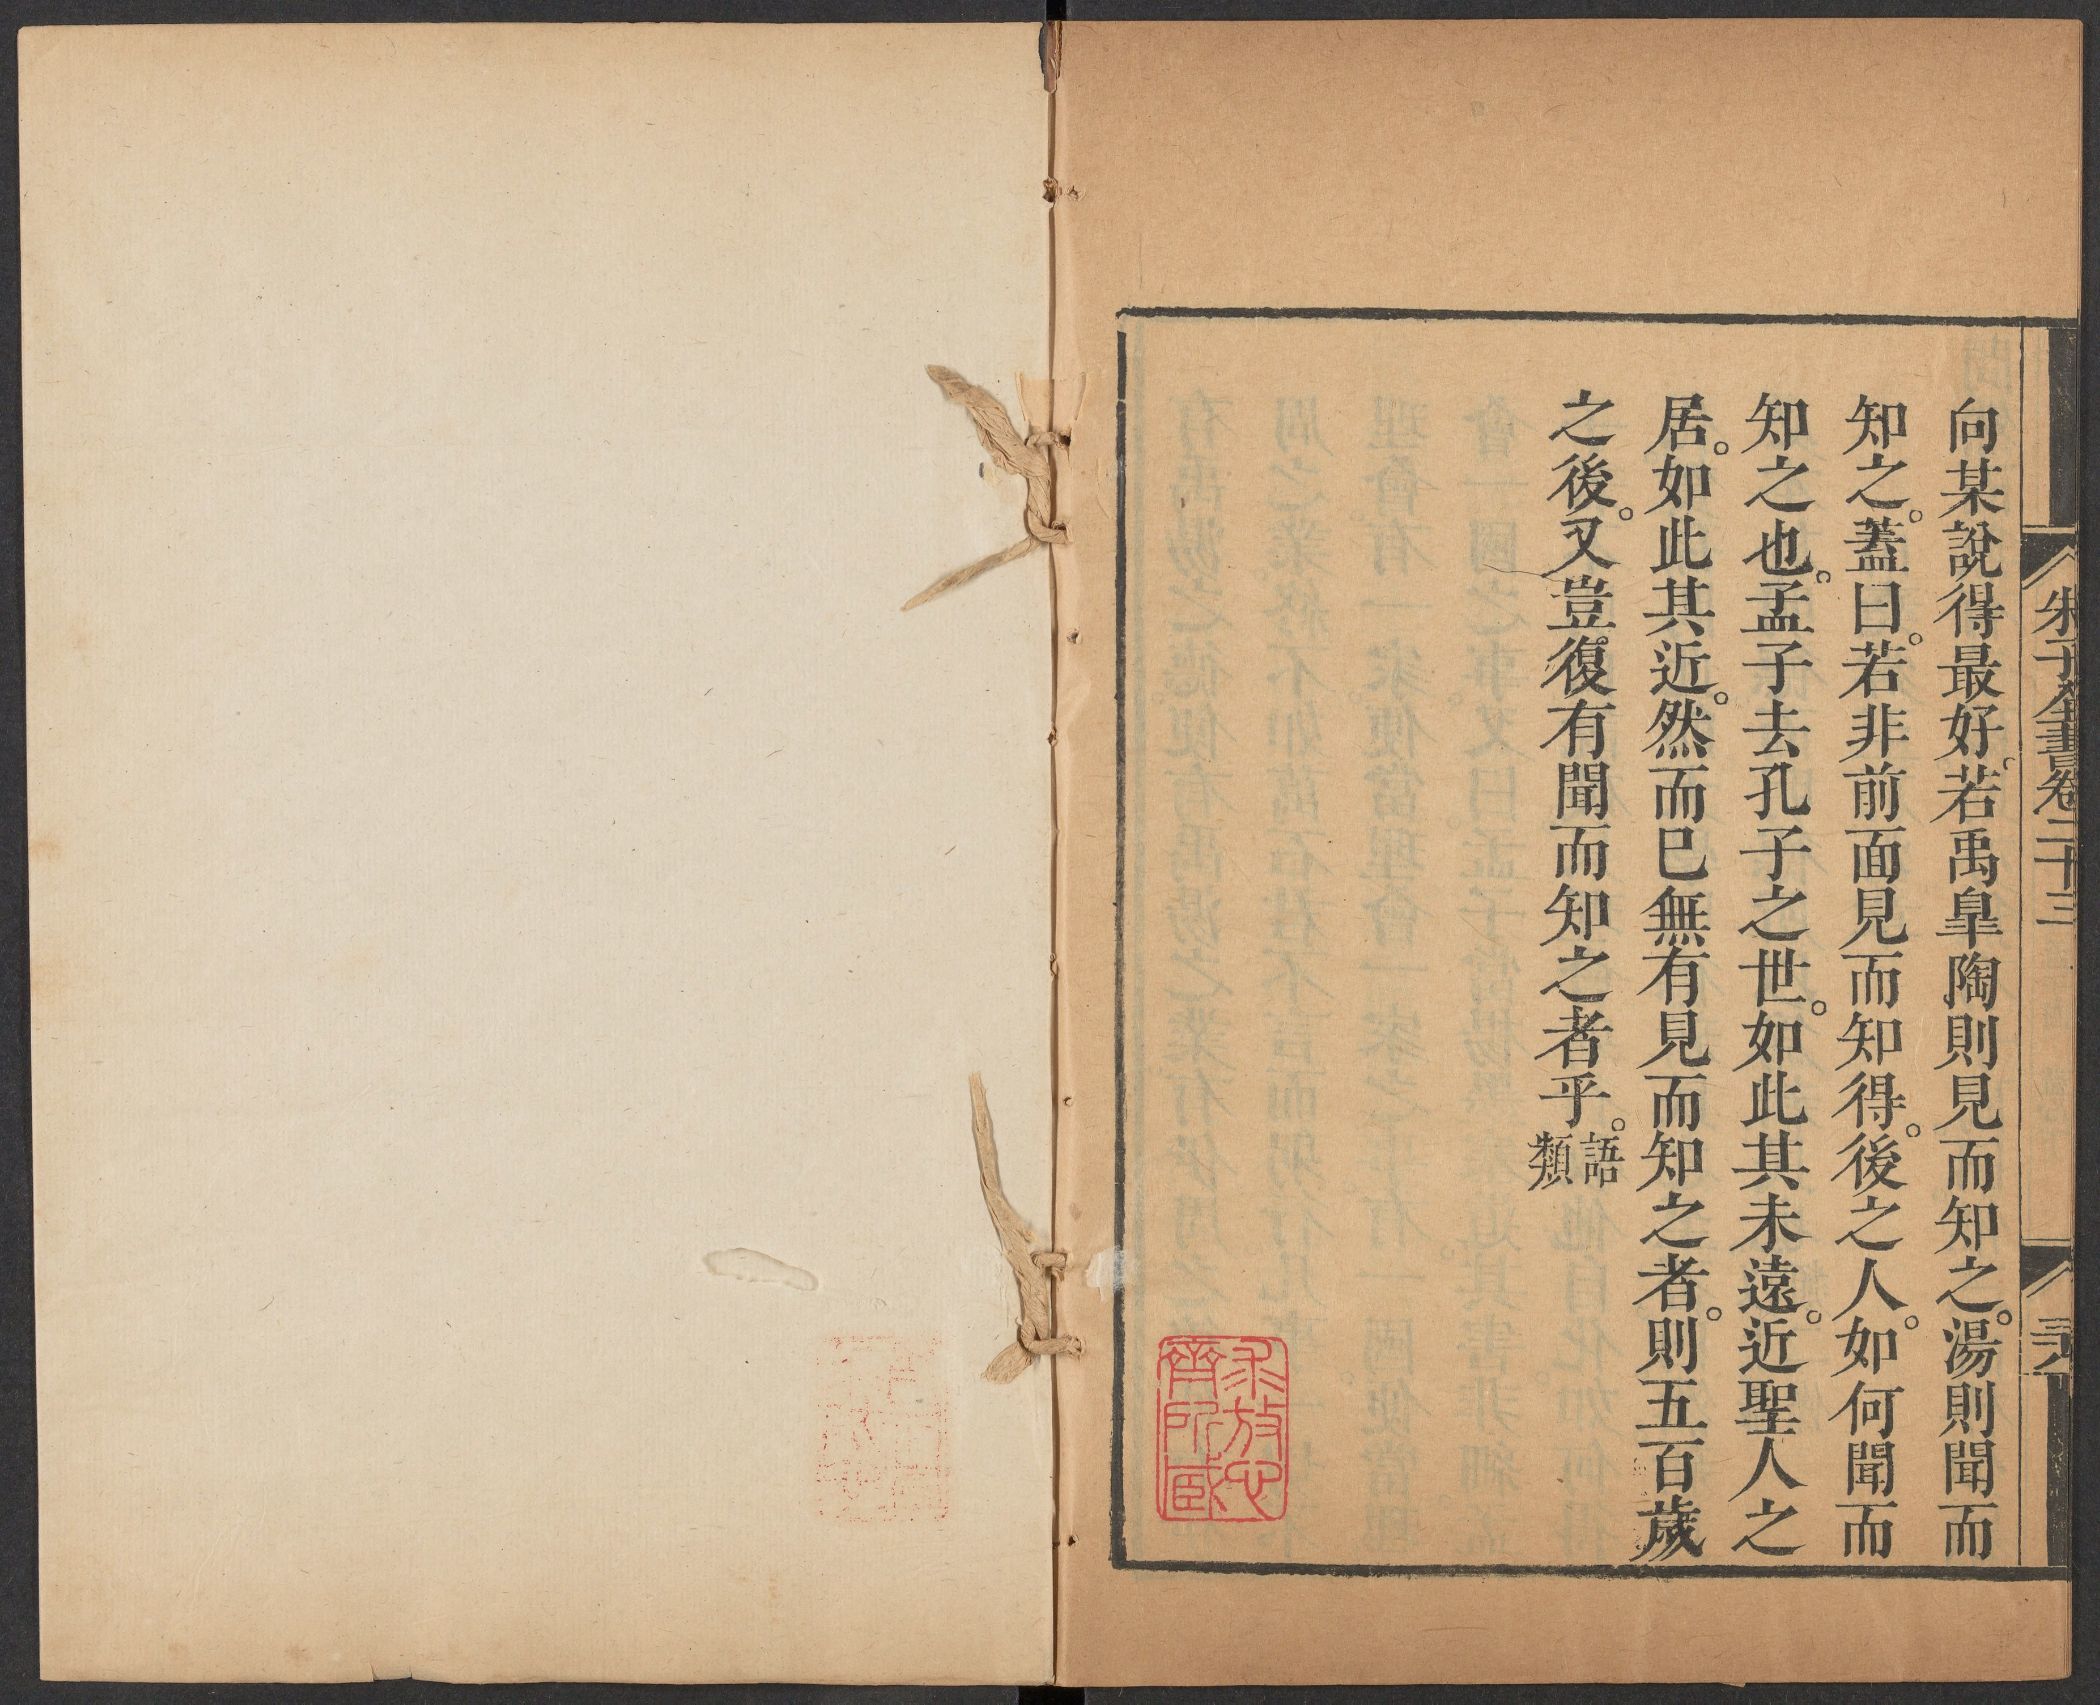 朱子全書卷二十三
向某說得最好。若禹臯陶則見而知之。湯則聞而
知之。蓋曰。若非前面見而知得。後之人。如何聞而
知之也。孟子去孔子之世。如此其未遠。近聖人之
居。如此其近。然而已無有見而知之者。則五百歲
之後。又豈復有聞而知之者乎。語類